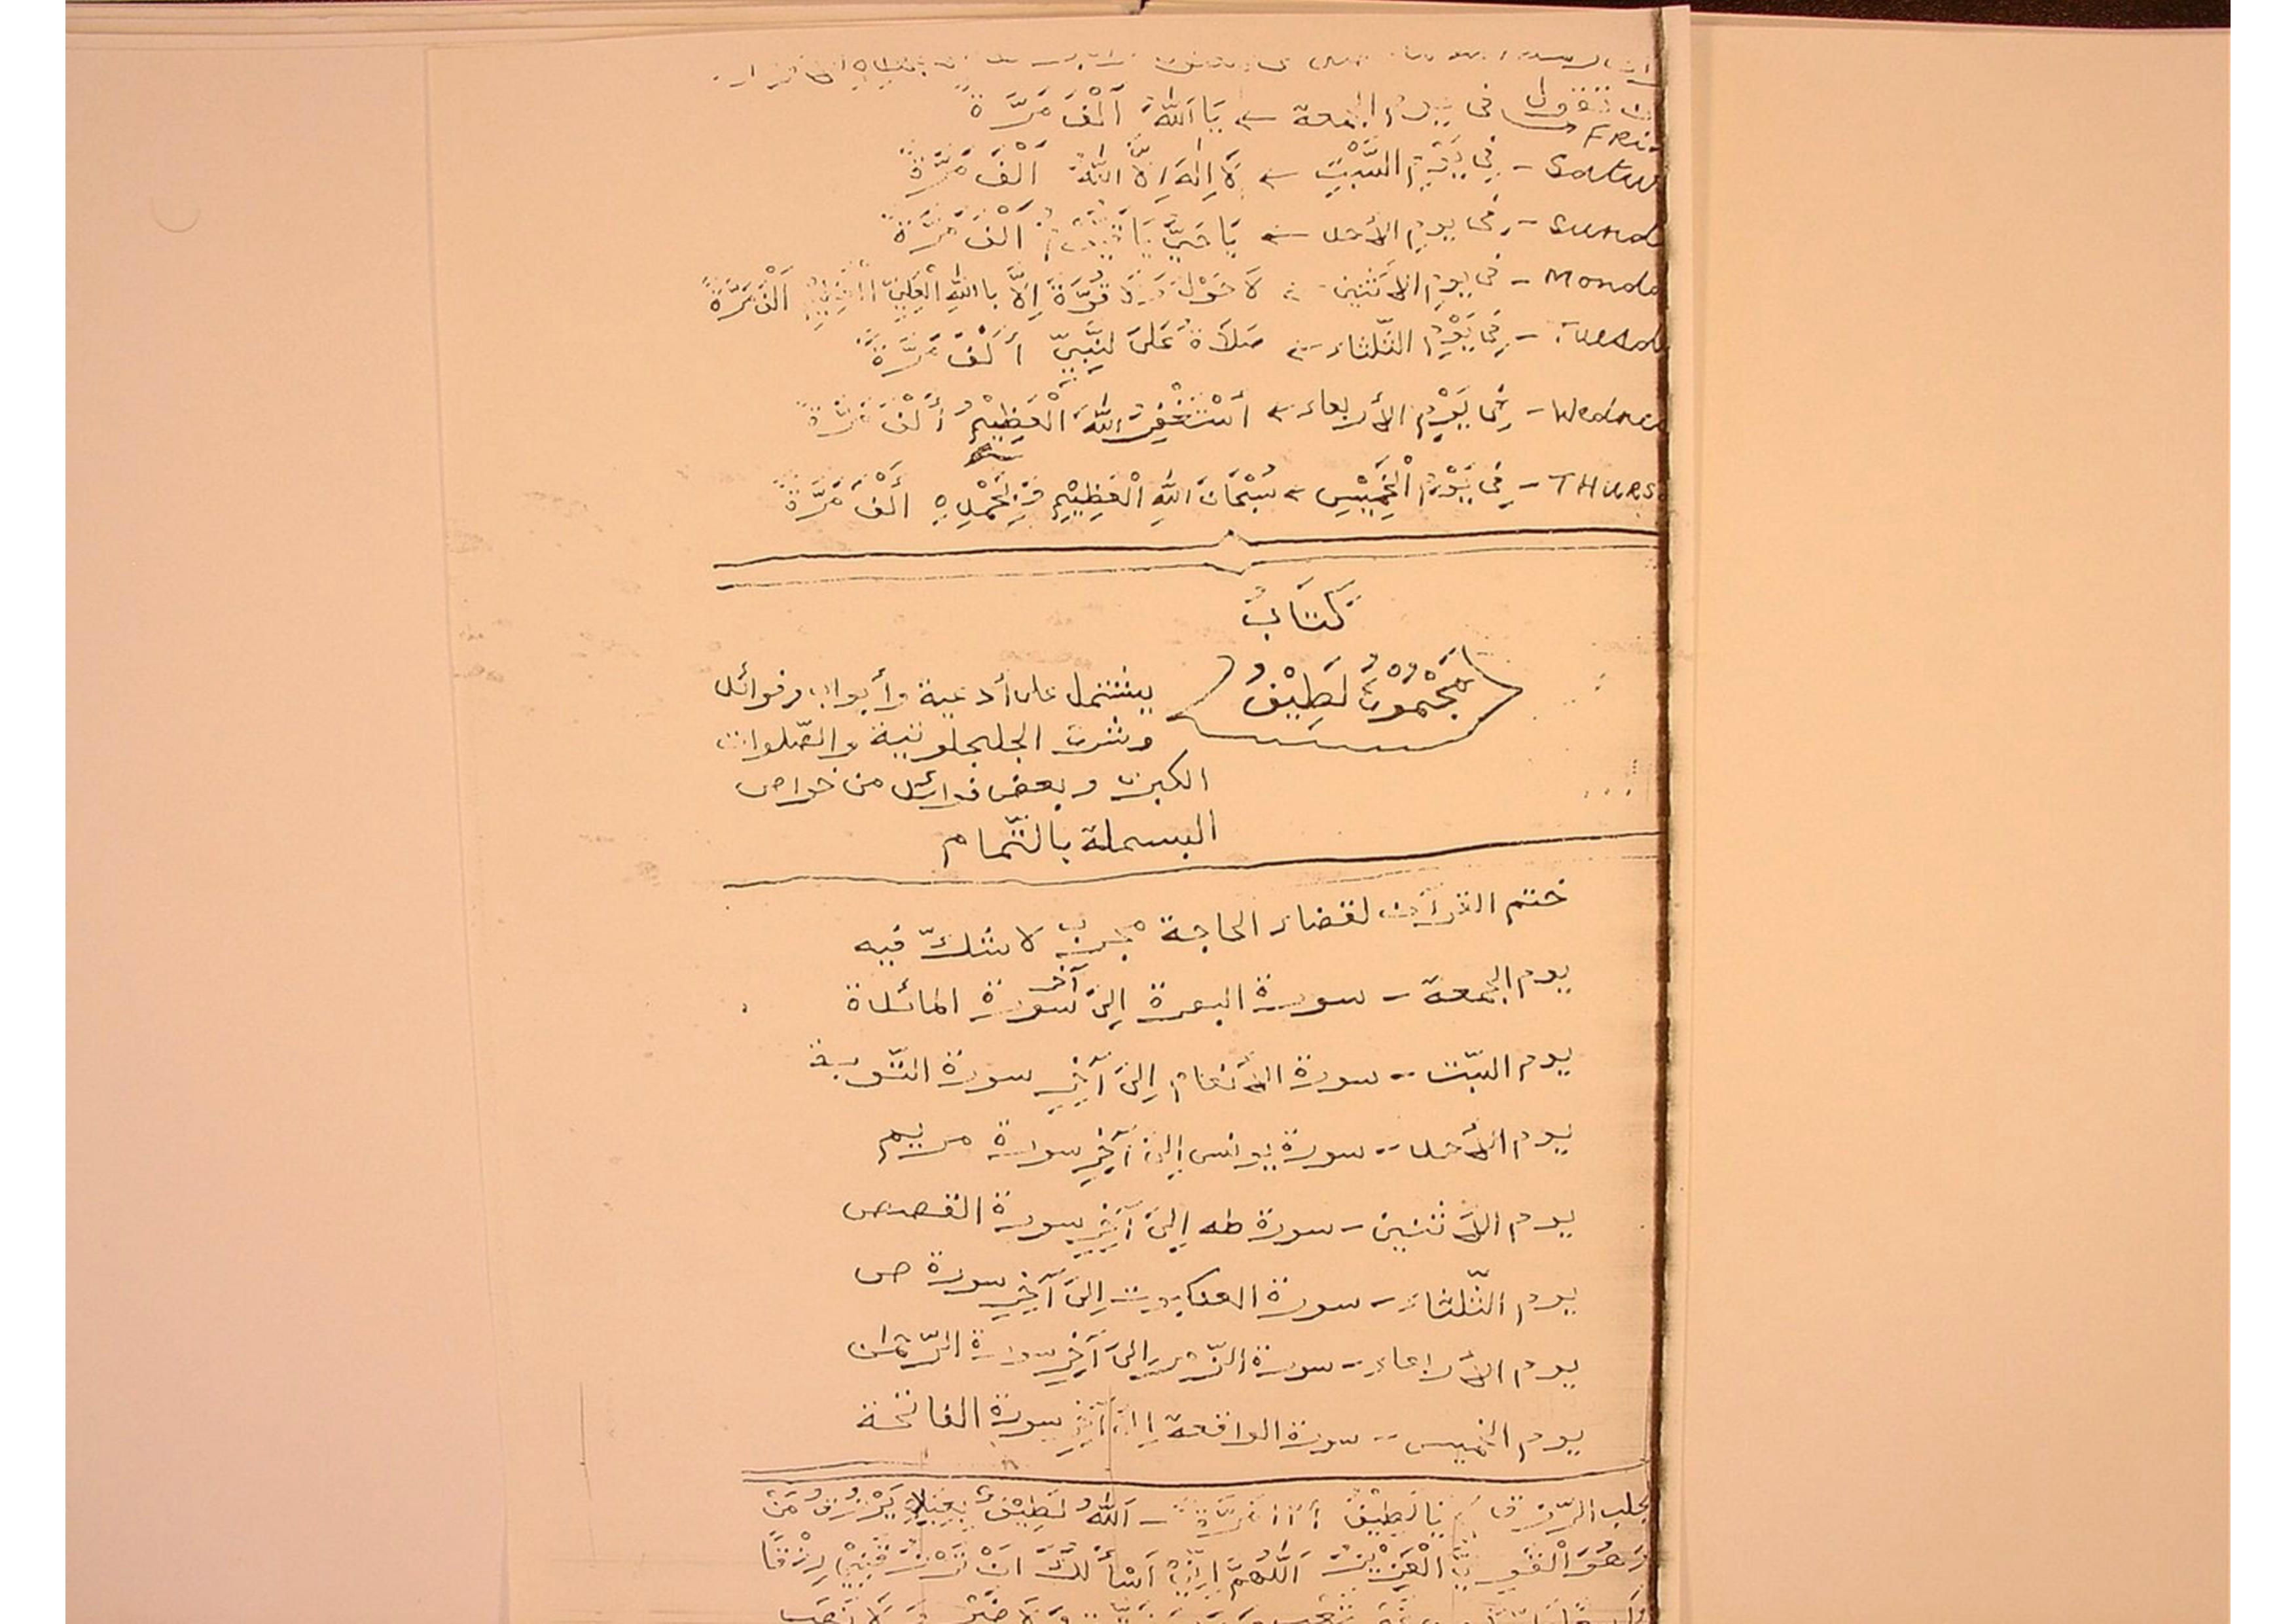 تقول في يوم الجمعة ← يَا اَللّٰهُ اَلْفَ مَرَّة
Fri
Satur - فِي يَوْمِ السَّبْتِ ← لَا اِلٰهَ اِلَّا اللّٰهُ اَلْفَ مَرَّةً
Sund - في يوم الأحد ← يَا حَيُّ يَا قَيُّوْمُ اَلْفَ مَرَّةً
Monda - في يوم الاثنين ← لَا حَوْلَ وَلَا قُوَّةَ اِلَّا بِاللّٰهِ الْعَلِيِّ الْعَظِيْمِ اَلْفَ مَرَّةً
Tuesd - فِي يَوْمِ الثّلثاء ← صَلَاةُ عَلَى لنَّبِيّ أَلْفَ مَرَّةً
Wednes - فِي يَوْمِ الأربعاء ← أَسْتَغْفِرُ اللّٰهَ الْعَظِيْمَ أَلْفَ مَرَّةً
THURS - فِي يَوْمِ الْخَمِيْسِ ← سُبْحَانَ اللّٰهِ الْعَظِيْمِ وَبِحَمْدِهِ أَلْفَ مَرَّةً
كِتَابُ
مَجْمُوْعُ لَطِيْفُ
يشتمل على أدعية وأبواب وفوائد
وشرح الجلجلوتية والصّلوات
الكبرى وبعض فوائد من خواص
البسملة بالتّمام
ختم القرآن لقضاء الحاجة مجرب لا شكّ فيه
يوم الجمعة - سورة البقرة إلى آخر سورة المائدة
يوم السّبت - سورة الأنعام إلى آخِرِ سورة التّوبة
يوم الأحد - سورة يونس إلى آخِرِ سورة مريم
يوم الاثنين - سورة طه إلى آخِرِ سورة القصص
يوم الثّلثاء - سورة العنكبوت إلى آخِرِ سورة ص
يوم الأربعاء - سورة الزّمر إلى آخِرِ سورة الرّحمٰن
يوم الخميس - سورة الواقعة إلى آخِرِ سورة الفاتحة
لجلب الرّزق يَا لَطِيْفُ مَرَّةً - اَللّٰهُ لَطِيْفٌ بِعِبَادِهِ يَرْزُقُ مَنْ
وَهُوَ الْقَوِيُّ الْعَزِيْزُ اَللّٰهُمَّ اِنِّيْ اَسْأَلُكَ اَنْ تَرْزُقَنِيْ رِزْقًا